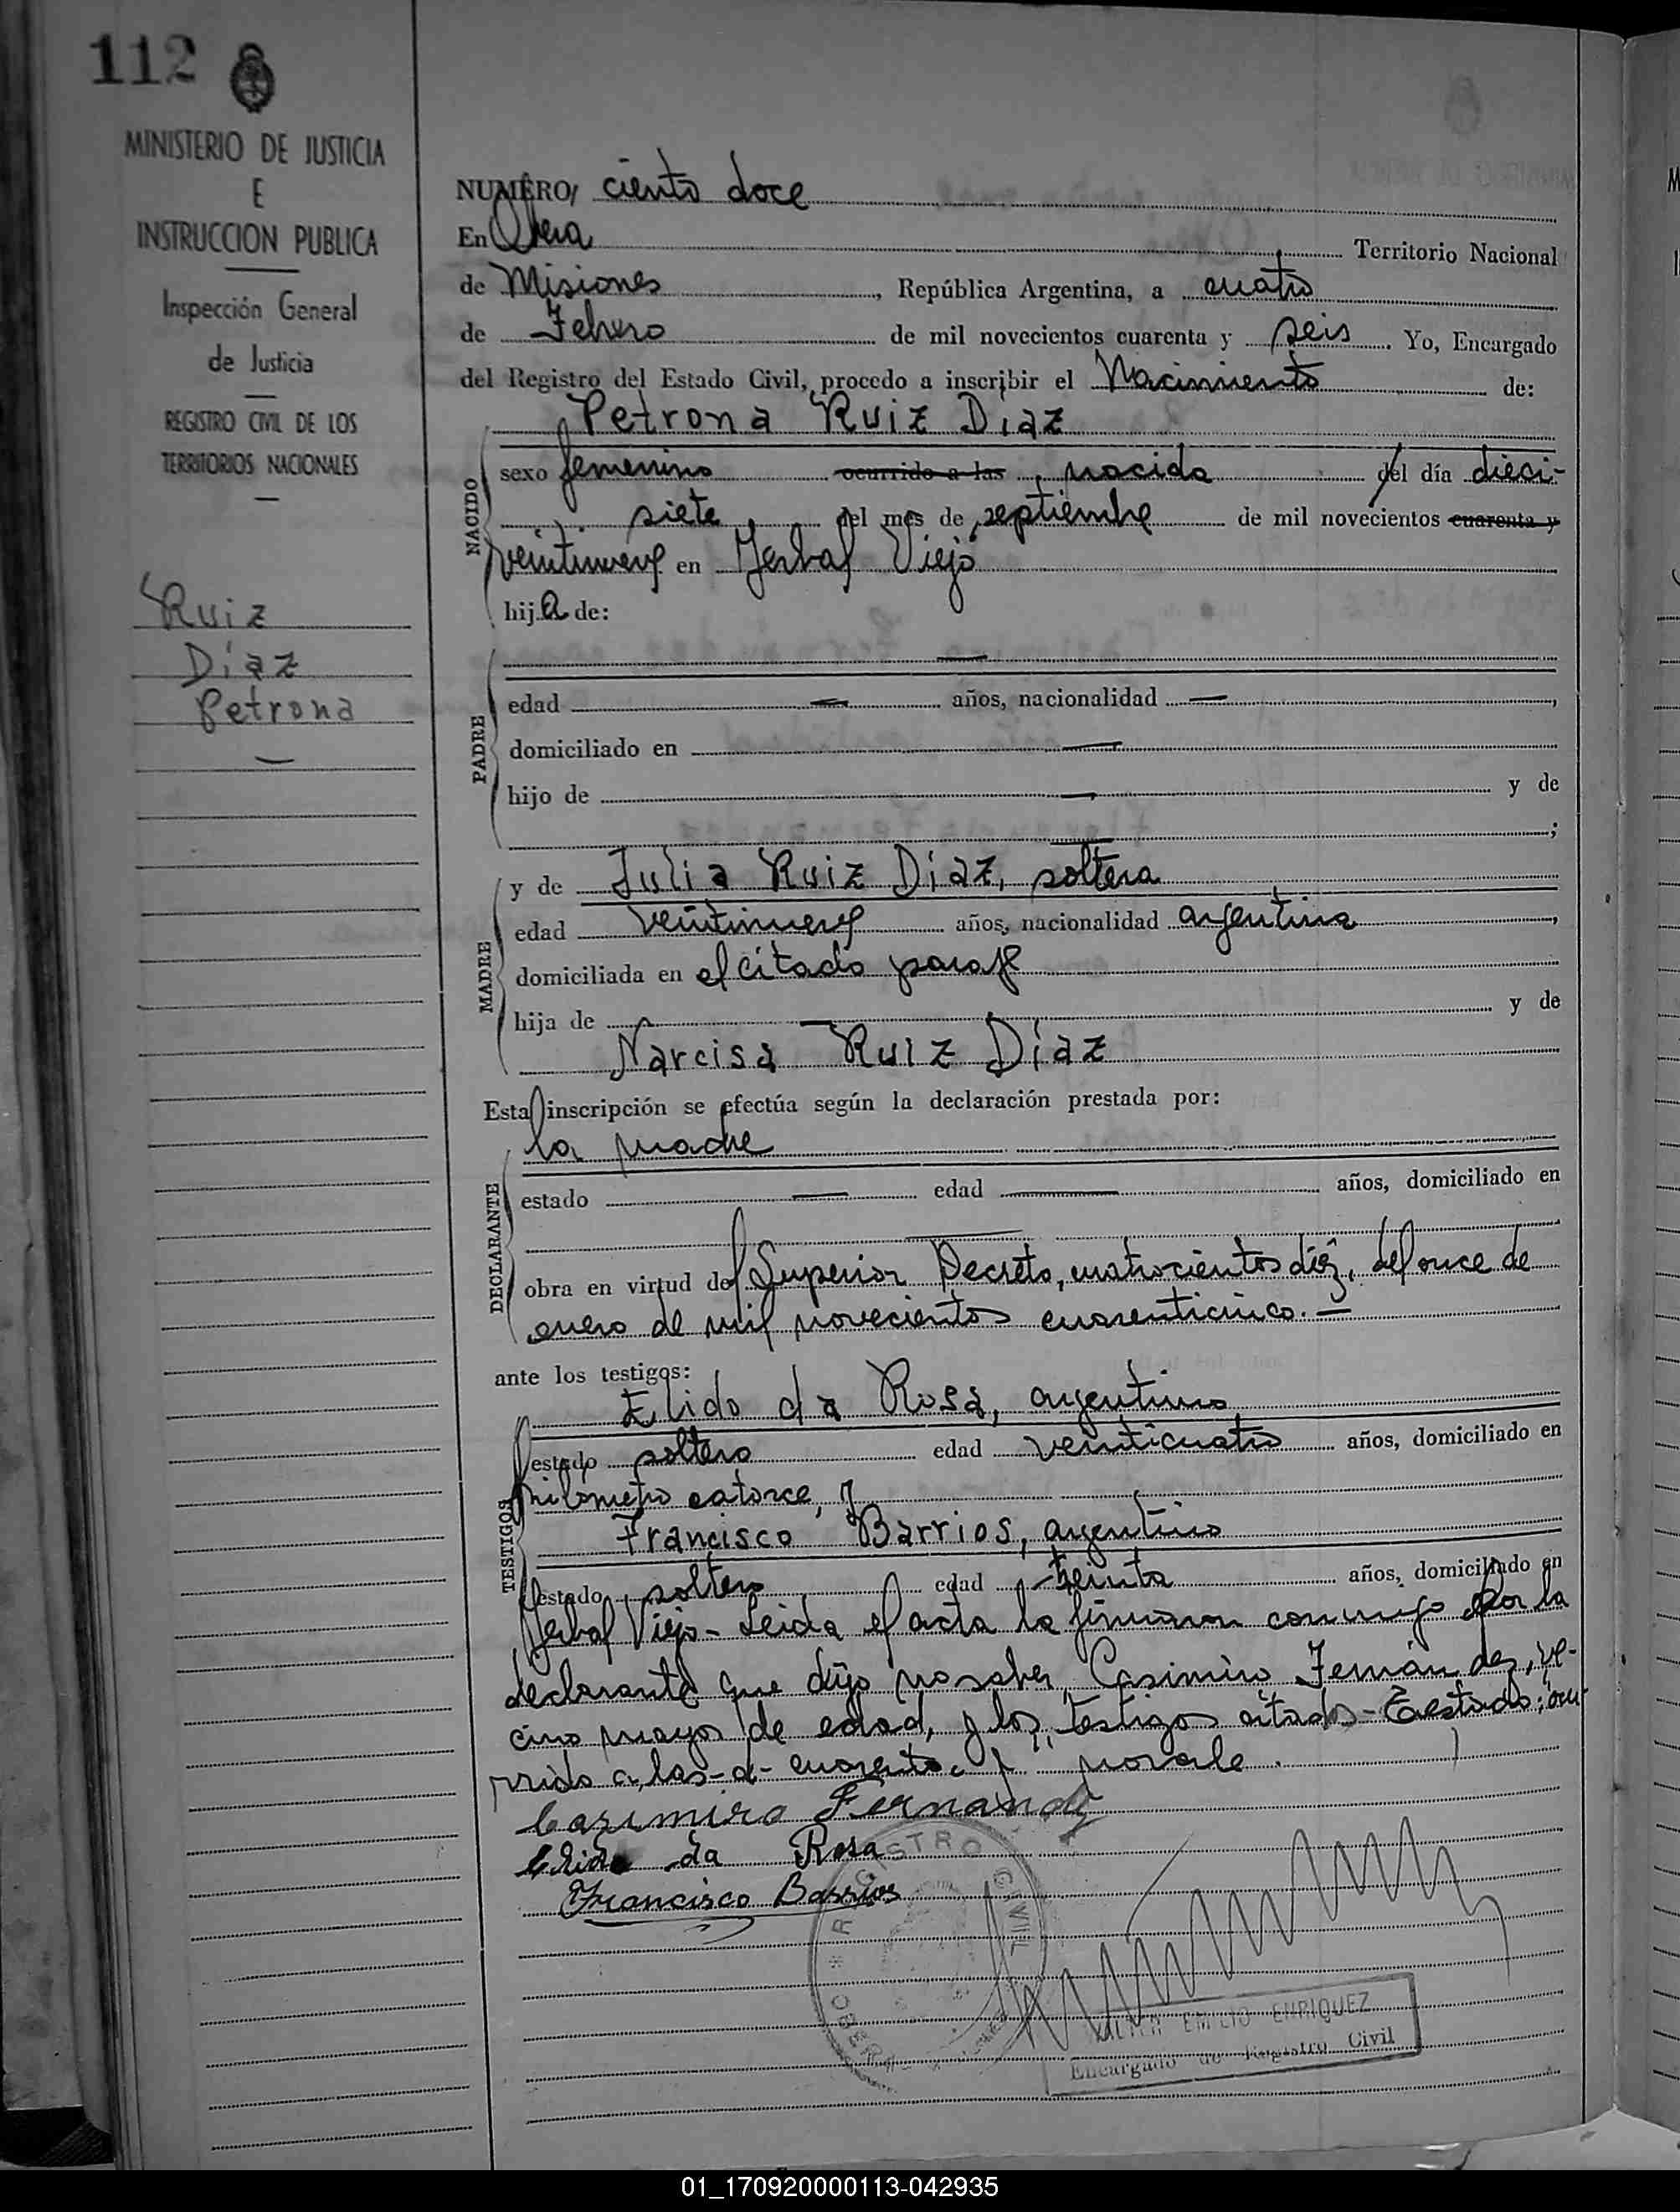 112
MINISTERIO DE JUSTICIA
E
INSTRUCCION PUBLICA
Inspección General
de Justicia
REGISTRO CIVIL DE LOS
TERRITORIOS NACIONALES
Ruiz
Díaz
Petrona
NUMERO, ciento doce
En Obera Territorio Nacional
de Misiones, República Argentina, a cuatro
de Febrero de mil novecientos cuarenta y seis. Yo, Encargado
del Registro del Estado Civil, procedo a inscribir el Nacimiento de:
Petrona Ruiz Díaz
NACIDO
sexo femenino ocurrido a las, nacida del día dieci-
siete, del mes de septiembre de mil novecientos cuarenta y
veintinueve en Yerbal Viejo
hija de:
PADRE
edad — años, nacionalidad —,
domiciliado en —
hijo de — y de
;
MADRE
y de Julia Ruiz Díaz, soltera
edad veintinueve años, nacionalidad argentina,
domiciliada en el citado paraje
hija de — y de
Narcisa Ruiz Díaz
Esta inscripción se efectúa según la declaración prestada por:
la madre
DECLARANTE
estado — edad — años, domiciliado en
—
obra en virtud del Superior Decreto, cuatrocientos diéz, del once de
enero de mil novecientos cuarenticinco.—
ante los testigos:
TESTIGOS
Elido da Rosa, argentino
estado soltero edad veinticuatro años, domiciliado en
kilometro catorce, y
Francisco Barrios, argentino
estado soltero edad treinta años, domiciliado en
Yerbal Viejo- Leida el acta la firmaron conmigo por la
declarante que dijo no saber, Casimiro Fernández, ve-
cino mayor de edad, y los testigos citados- Testado: "ocu-
rrido a las-d- cuarenta y" no vale.
Casimiro Fernandez
Elido da Rosa
Francisco Barrios
REGISTRO CIVIL
OBERA
EMILIO ENRIQUEZ
Encargado de Registro Civil
01_170920000113-042935